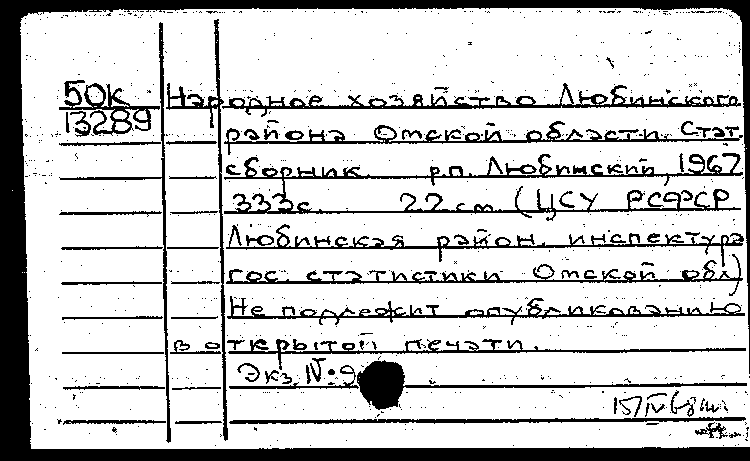 50К Народное хозяйство Любинского
13289 района Омской области. Стат.
сборник. р.п. Любинский, 1967
333с. 22 см. (ЦСУ РСФСР
Любинская район. инспектура
гос. статистики Омской обл)
Не подлежит опубликованию
в открытой печати.
Экз. №9
15/IV 68